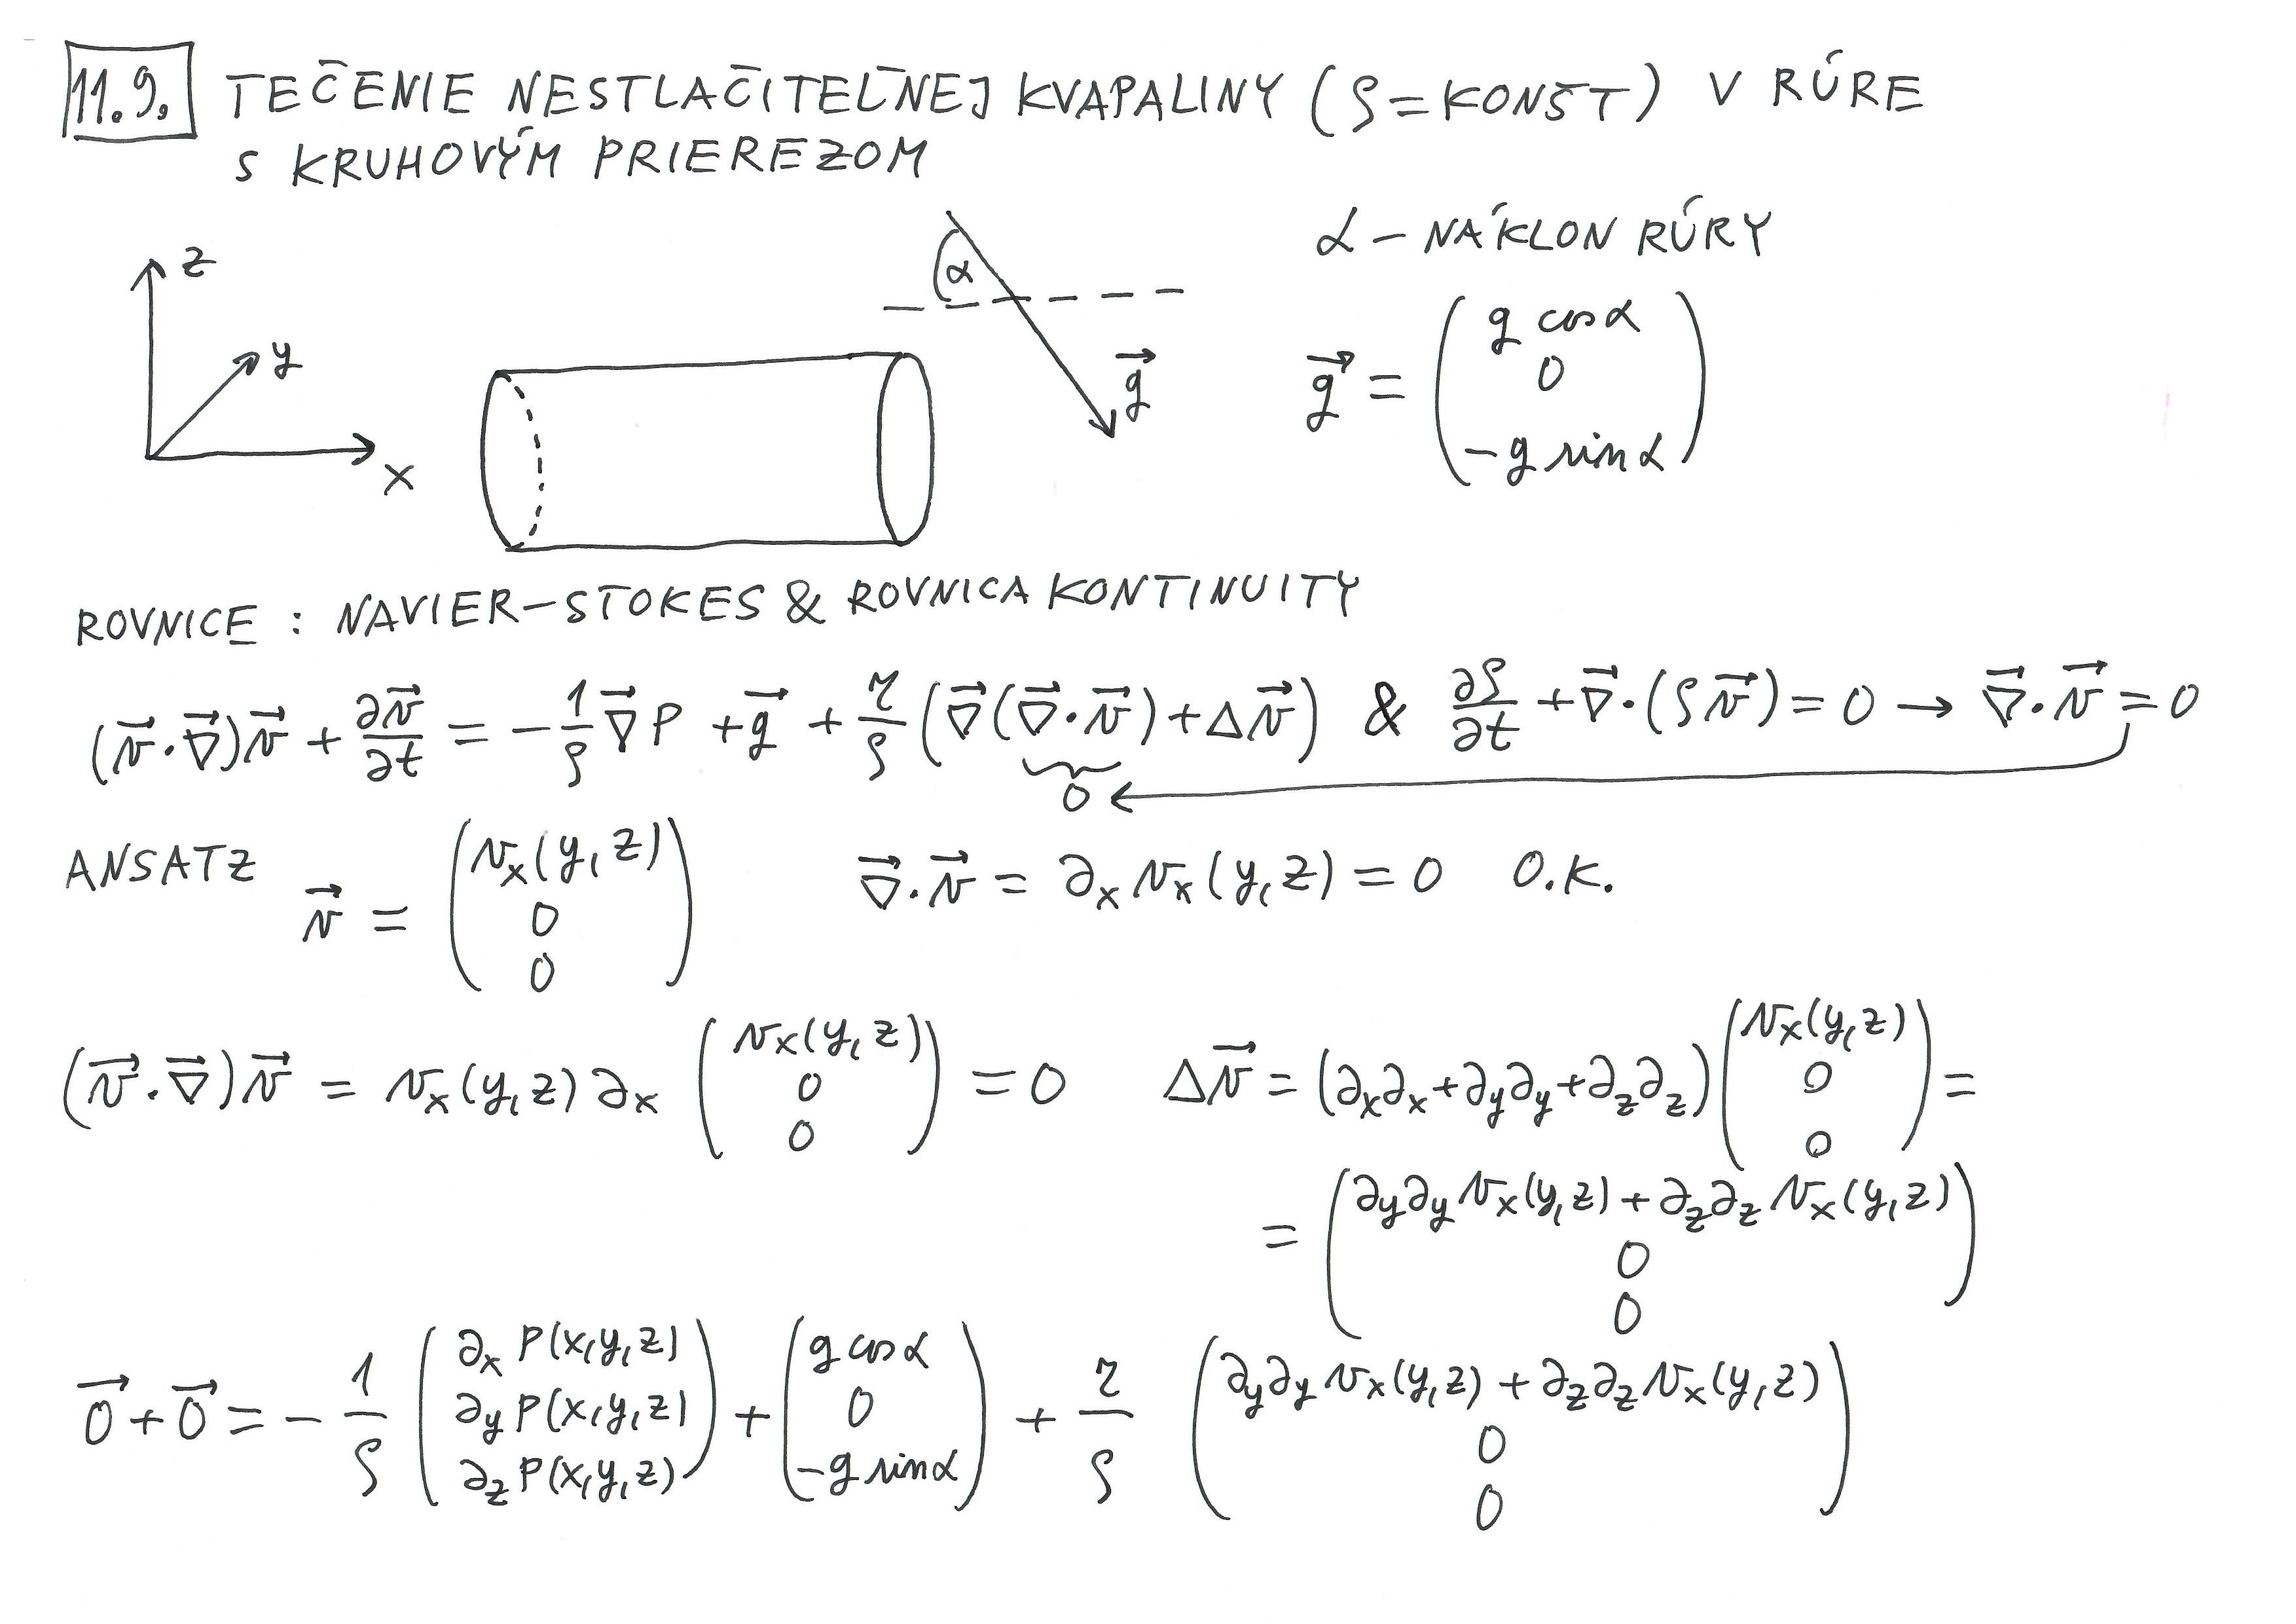 11.9. TEČENIE NESTLAČITEĽNEJ KVAPALINY (ρ = KONŠT) V RÚRE
S KRUHOVÝM PRIEREZOM
α – NÁKLON RÚRY
z
y
x
α
g⃗
g⃗ = ( g cos α
0
−g sin α )
ROVNICE : NAVIER–STOKES & ROVNICA KONTINUITY
(v⃗·∇⃗)v⃗ + ∂v⃗/∂t = −1/ρ ∇⃗P + g⃗ + η/ρ (∇⃗(∇⃗·v⃗) + Δv⃗) & ∂ρ/∂t + ∇⃗·(ρv⃗) = 0 → ∇⃗·v⃗ = 0
0 ←
ANSATZ v⃗ = ( vₓ(y,z)
0
0 )
∇⃗·v⃗ = ∂ₓ vₓ(y,z) = 0 O.K.
(v⃗·∇⃗)v⃗ = vₓ(y,z) ∂ₓ ( vₓ(y,z)
0
0 ) = 0
Δv⃗ = (∂ₓ∂ₓ + ∂y∂y + ∂z∂z) ( vₓ(y,z)
0
0 ) =
= ( ∂y∂y vₓ(y,z) + ∂z∂z vₓ(y,z)
0
0 )
0⃗ + 0⃗ = − 1/ρ ( ∂ₓ P(x,y,z)
∂y P(x,y,z)
∂z P(x,y,z) ) + ( g cos α
0
−g sin α ) + η/ρ ( ∂y∂y vₓ(y,z) + ∂z∂z vₓ(y,z)
0
0 )